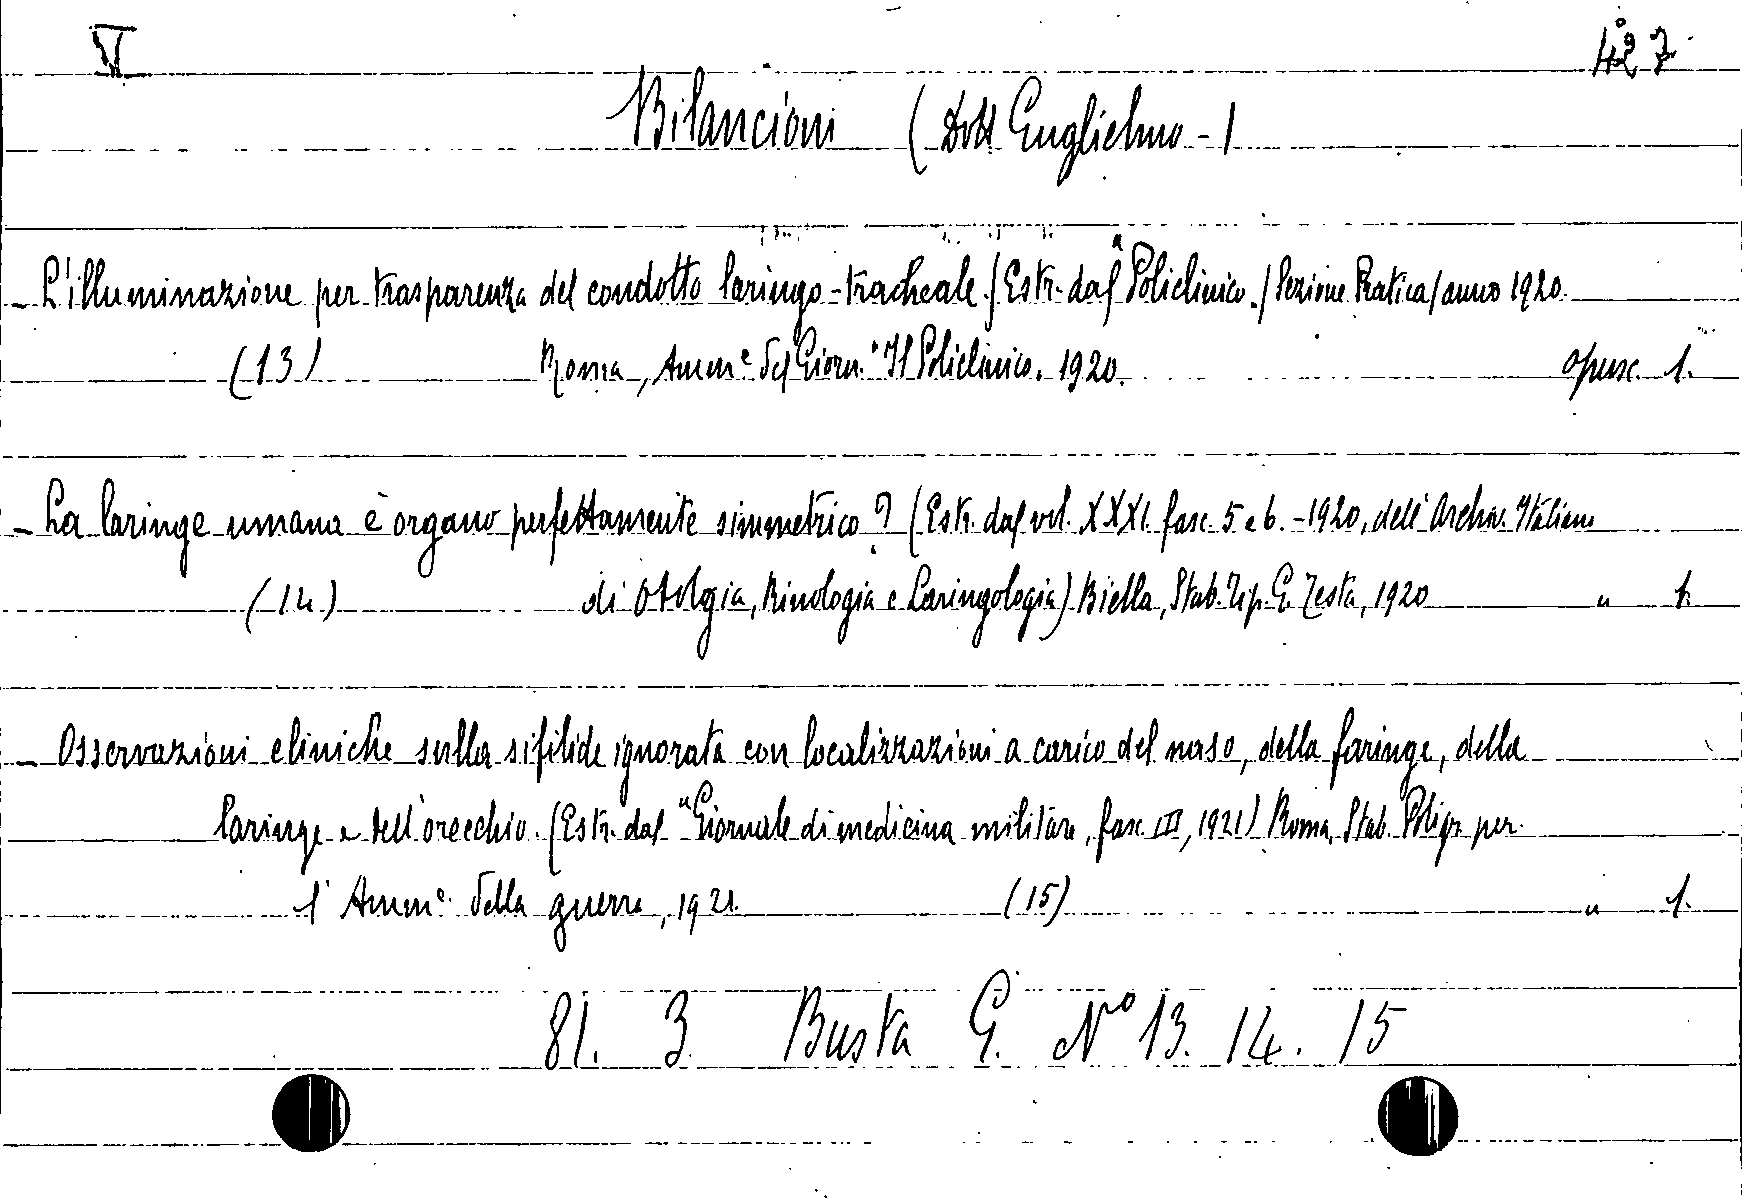 VI 427
Bilancioni (Dott Guglielmo -)
- L'illuminazione per trasparenza del condotto laringo-tracheale. (Estr. dal "Policlinico. (Sezione Pratica) anno 1920.
(13) Roma, Amm.e del Giorn. "Il Policlinico. 1920. opusc. 1.
- La laringe umana è organo perfettamente simmetrico? (Estr. dal vol. XXXI. fasc. 5 e 6. - 1920, dell' Archiv. Italiano
(14) di Otologia, Rinologia e Laringologia) Biella, Stab. Tip. G. Testa, 1920 " 1.
- Osservazioni cliniche sulla sifilide ignorata con localizzazioni a carico del naso, della faringe, della
laringe e dell'orecchio. (Estr. dal "Giornale di medicina militare, fasc III, 1921) Roma, Stab. Poligr. per
l'Amm.e della guerra, 1921. (15) " 1.
81. 3. Busta G. No 13. 14. 15